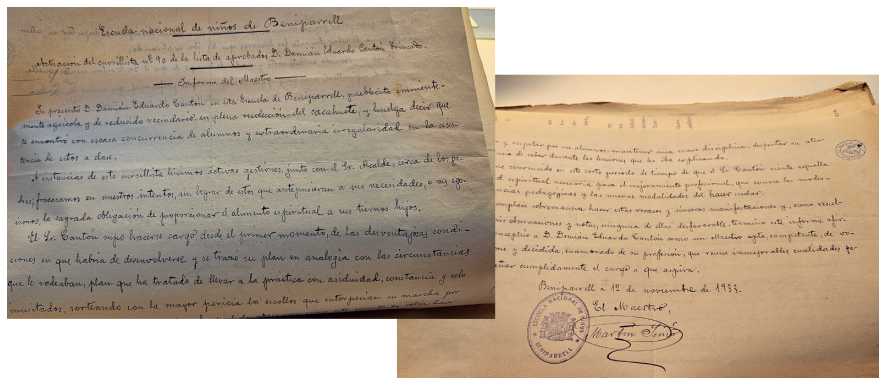 Escuela nacional de niños de Beniparrell
Actuación del cursillista nº 90 de la lista de aprobados, D. Damián Eduardo Cantón
Informe del Maestro
Se presentó D. Damián Eduardo Cantón en esta Escuela de Beniparrell, pueblecito eminente-
mente agrícola y de reducido vecindario, en plena recolección del cacahuete, y huelga decir que
se encontró con escasa concurrencia de alumnos y extraordinaria irregularidad en la asis-
tencia de estos a clase.
A instancias de este cursillista hicimos activas gestiones, junto con el Sr. Alcalde, cerca de los pa-
dres, fracasamos en nuestros intentos, sin lograr de estos que antepusieran a sus necesidades, o sus ego-
ismos, la sagrada obligación de proporcionar el alimento espiritual a sus tiernos hijos.
El Sr. Cantón supo hacerse cargo desde el primer momento, de las desventajosas condi-
ciones en que habría de desenvolverse y se trazó su plan en analogía con las circunstancias
que le rodeaban, plan que ha tratado de llevar a la práctica con asiduidad, constancia y celo
inusitados, sorteando con la mayor pericia los escollos que entorpecían su marcha por
y respetar por sus alumnos, mantener una suave disciplina, despertar su aten
de saber durante las lecciones que les iba explicando.
convencido en este corto periodo de tiempo de que el Sr. Cantón siente aquella
espiritual necesaria para el mejoramiento profesional, que conoce las moder-
pedagógicas y las nuevas modalidades del hacer
sobremanera hacer estas veraces y sinceras manifestaciones y, como resul-
observaciones y notas, ninguna de ellas desfavorable, termino este informe
a D. Damián Eduardo Cantón como un Maestro apto, competente, de vo-
y decidida, enamorado de su profesión, que reune inmejorables cualidades pa-
cumplidamente el cargo a que aspira.
Beniparrell a 12 de noviembre de 1933.
El Maestro,
Martín
ESCUELA NACIONAL DE NIÑOS
BENIPARRELL